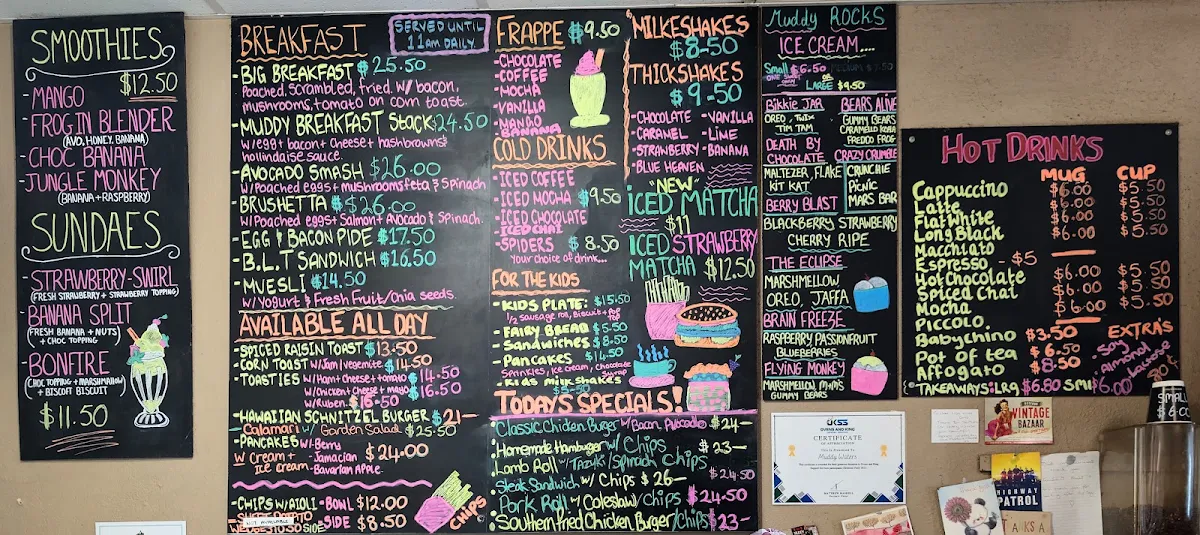 SMOOTHIES
$12.50
- MANGO
- FROG IN BLENDER
(AVO, HONEY, BANANA)
- CHOC BANANA
- JUNGLE MONKEY
(BANANA + RASPBERRY)
SUNDAES
- STRAWBERRY-SWIRL
(FRESH STRAWBERRY + STRAWBERRY TOPPING)
- BANANA SPLIT
(FRESH BANANA + NUTS
+ CHOC TOPPING)
- BONFIRE
(CHOC TOPPING + MARSHMALLOW
+ BISCOFF BISCUIT)
$11.50
BREAKFAST
SERVED UNTIL
11am DAILY.
- BIG BREAKFAST $25.50
Poached, Scrambled, fried. W/ bacon,
mushrooms, tomato on corn toast.
- MUDDY BREAKFAST Stack $24.50
W/ egg + bacon + cheese + hashbrowns +
hollindaise sauce.
- AVOCADO SMASH $26.00
W/ Poached eggs + mushrooms feta & Spinach
- BRUSHETTA $26.00
W/ Poached eggs + Salmon + Avocado & Spinach.
- EGG & BACON PIDE $17.50
- B.L.T SANDWICH $16.50
- MUESLI $14.50
W/ Yogurt & Fresh Fruit/chia seeds.
AVAILABLE ALL DAY
- SPICED RAISIN TOAST $13.50
CORN TOAST W/ Jam/vegemite $14.50
- TOASTIES W/ Ham + Cheese + tomato $14.50
W/ Chicken + Cheese + mango $16.50
W/ Ruben $16.50
- HAWAIIAN SCHNITZEL BURGER $21-
- Calamari w/ Garden Salad $25.50
- PANCAKES W/ - Berry
W Cream + - Jamacian $24.00
Ice cream - Bavarian Apple.
- CHIPS W/ AIOLI - BOWL $12.00
SWEET POTATO
WEDGES SIDE - SIDE $8.50
NOT AVAILABLE
CHIPS
FRAPPE $9.50
- CHOCOLATE
- COFFEE
- MOCHA
- VANILLA
- MANGO
- BANANA
COLD DRINKS
- ICED COFFEE
- ICED MOCHA $9.50
- ICED CHOCOLATE
- ICED CHAI
- SPIDERS $8.50
Your choice of drink...
FOR THE KIDS
- KIDS PLATE: $15.50
1/2 sausage roll, Biscuit + Pop Top
- FAIRY BREAD $5.50
- Sandwiches $8.50
- Pancakes $14.50
Sprinkles, Ice cream, Chocolate Syrup
- Kids milkshakes
$5.50
MILKESHAKES
$8.50
THICKSHAKES
$9.50
- CHOCOLATE - VANILLA
- CARAMEL - LIME
- STRAWBERRY - BANANA
- BLUE HEAVEN
"NEW"
ICED MATCHA
$11
ICED STRAWBERRY
MATCHA $12.50
TODAYS SPECIALS!
Classic Chicken Burger w/ Bacon, Avocadoe $24-
- Homemade Hamburger w/ Chips $23-
- Lamb Roll w/ Tazuki/Spinach Chips $24.50
Steak Sandwich w/ Chips $26-
Pork Roll w/ Coleslaw/chips $24.50
- Southern fried Chicken Burger/chips $23-
Muddy ROCKS
ICE CREAM....
Small $6.50 MEDIUM $7.50
ONE SWEET ONLY OR
LARGE $9.50
Bikkie JAR
OREO, TWIX
TIM TAM
DEATH BY
CHOCOLATE
MALTEZER, FLAKE
KIT KAT
BERRY BLAST
BEARS ALIVE
GUMMY BEARS
CARAMELLO KOALA
FREDDO FROG
CRAZY CRUMBLE
CRUNCHIE
PICNIC
MARS BAR
BLACKBERRY STRAWBERRY
CHERRY RIPE
THE ECLIPSE
MARSHMELLOW
OREO, JAFFA
BRAIN FREEZE
RASPBERRY PASSIONFRUIT
BLUEBERRIES
FLYING MONKEY
MARSHMELLOW M+M's
GUMMY BEARS
HOT DRINKS
MUG CUP
Cappuccino $6.00 $5.50
Latte $6.00 $5.50
Flat White $6.00 $5.50
Long Black $6.00 $5.50
Macchiato
Espresso - $5
Hot Chocolate $6.00 $5.50
Spiced Chai $6.00 $5.50
Mocha $6.00 $5.50
Piccolo
Babychino $3.50
Pot of tea $6.50
Affogato $8.50
EXTRA'S
- Soy
- Almond
- Lactose
TAKEAWAYS: LRG $6.80 SML $6.00
Small
$6.00
CERTIFICATE
OF APPRECIATION
Muddy Waters
VINTAGE
BAZAAR
HIGHWAY
PATROL
TAKSA